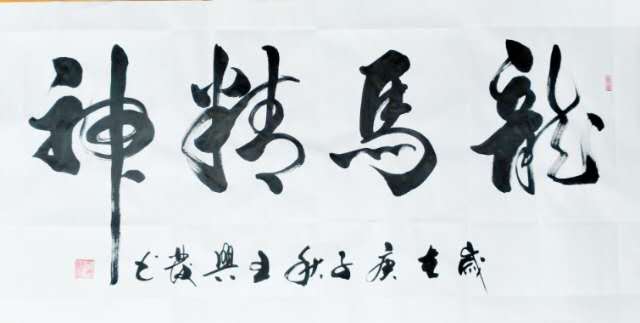 龍馬精神
歲在庚子秋王興發书